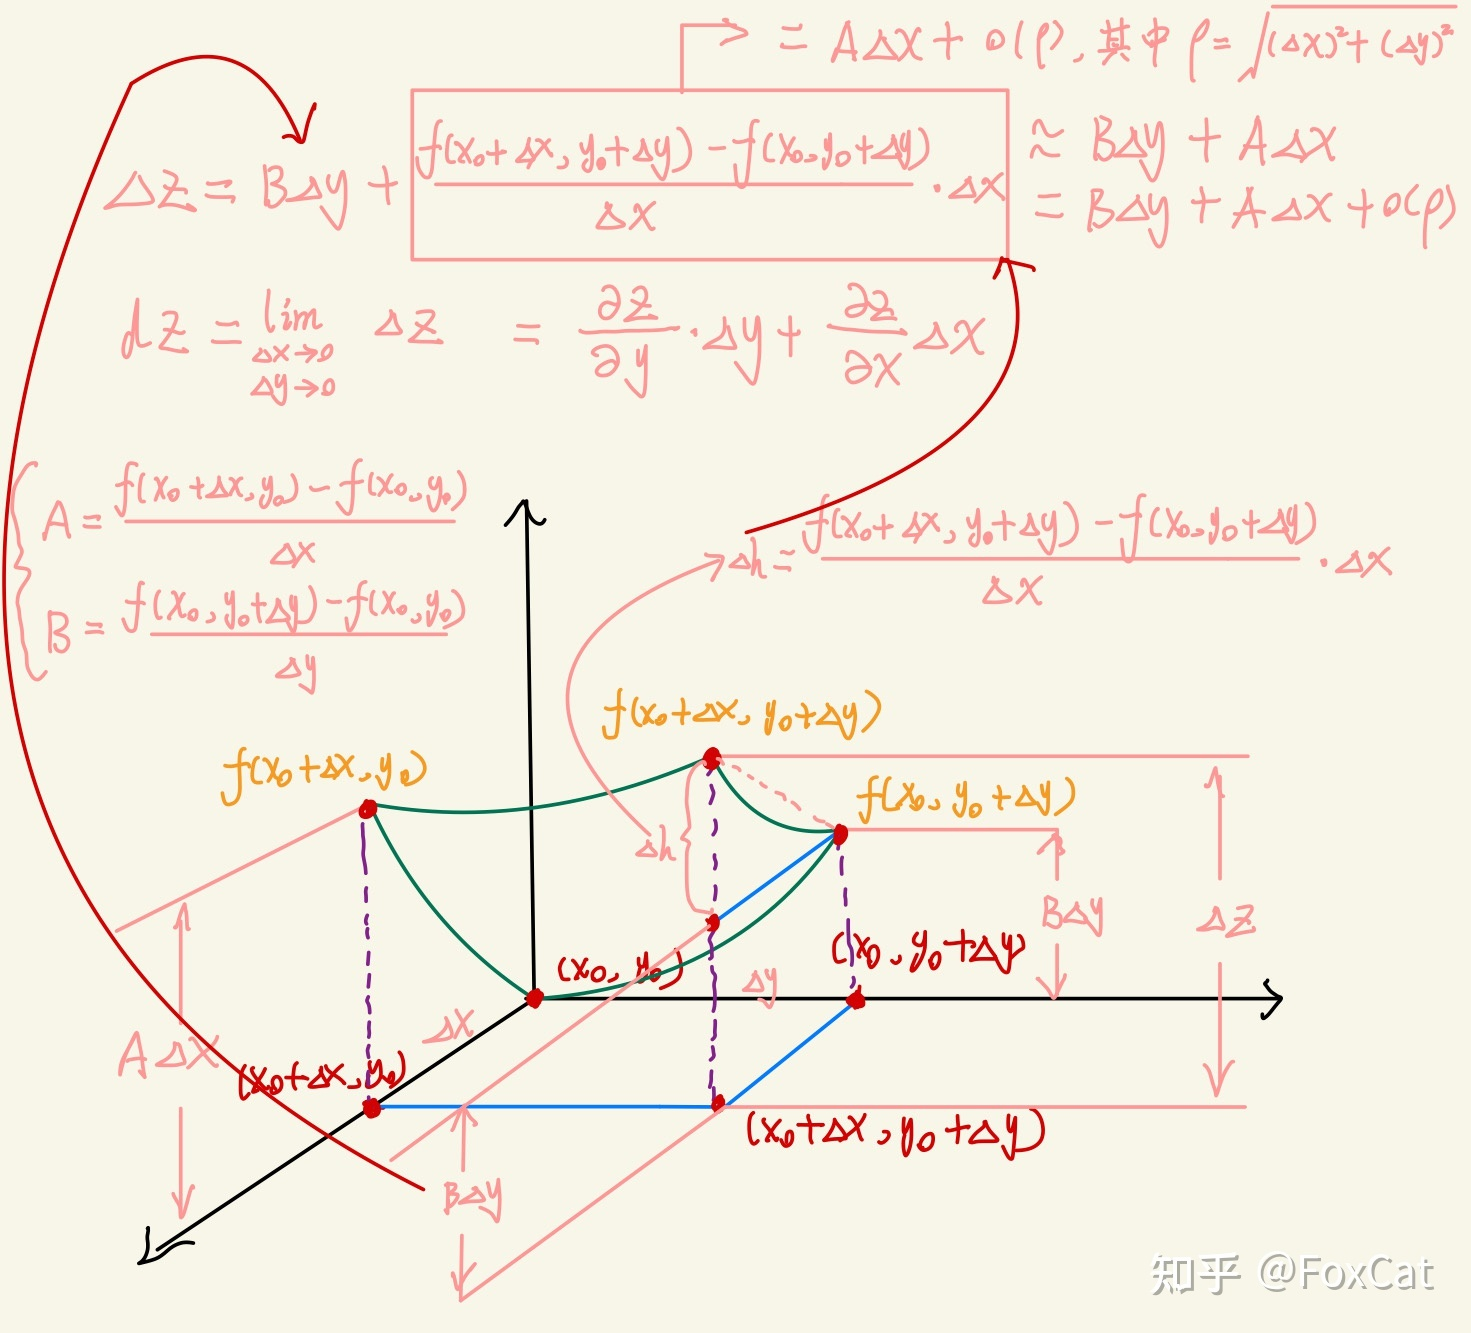 = AΔx + o(ρ), 其中 ρ = √((Δx)² + (Δy)²)
Δz = BΔy + (f(x₀+Δx, y₀+Δy) − f(x₀, y₀+Δy))/Δx · Δx ≈ BΔy + AΔx
= BΔy + AΔx + o(ρ)
dz = lim Δx→0 Δy→0 Δz = ∂z/∂y · Δy + ∂z/∂x Δx
A = (f(x₀+Δx, y₀) − f(x₀, y₀))/Δx
B = (f(x₀, y₀+Δy) − f(x₀, y₀))/Δy
Δh = (f(x₀+Δx, y₀+Δy) − f(x₀, y₀+Δy))/Δx · Δx
f(x₀+Δx, y₀+Δy)
f(x₀+Δx, y₀)
f(x₀, y₀+Δy)
Δh
BΔy
Δz
(x₀, y₀)
(x₀, y₀+Δy)
Δy
Δx
AΔx
(x₀+Δx, y₀)
(x₀+Δx, y₀+Δy)
BΔy
知乎 @FoxCat